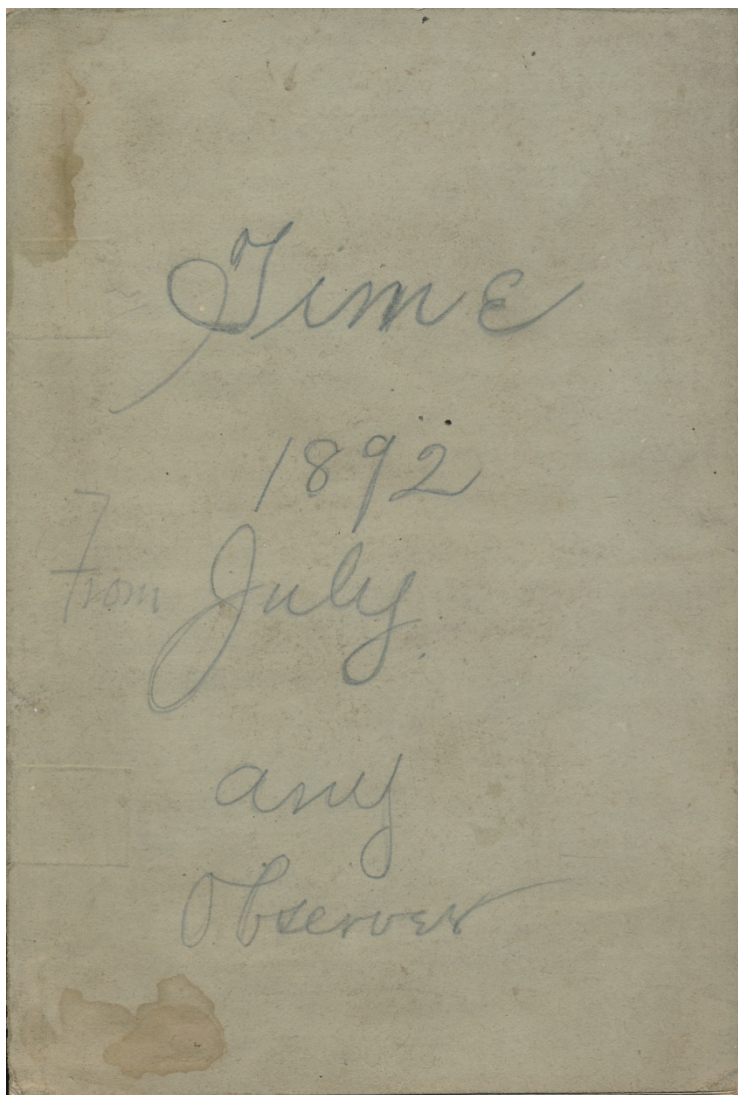 Time
1892
From July.
any
Observer